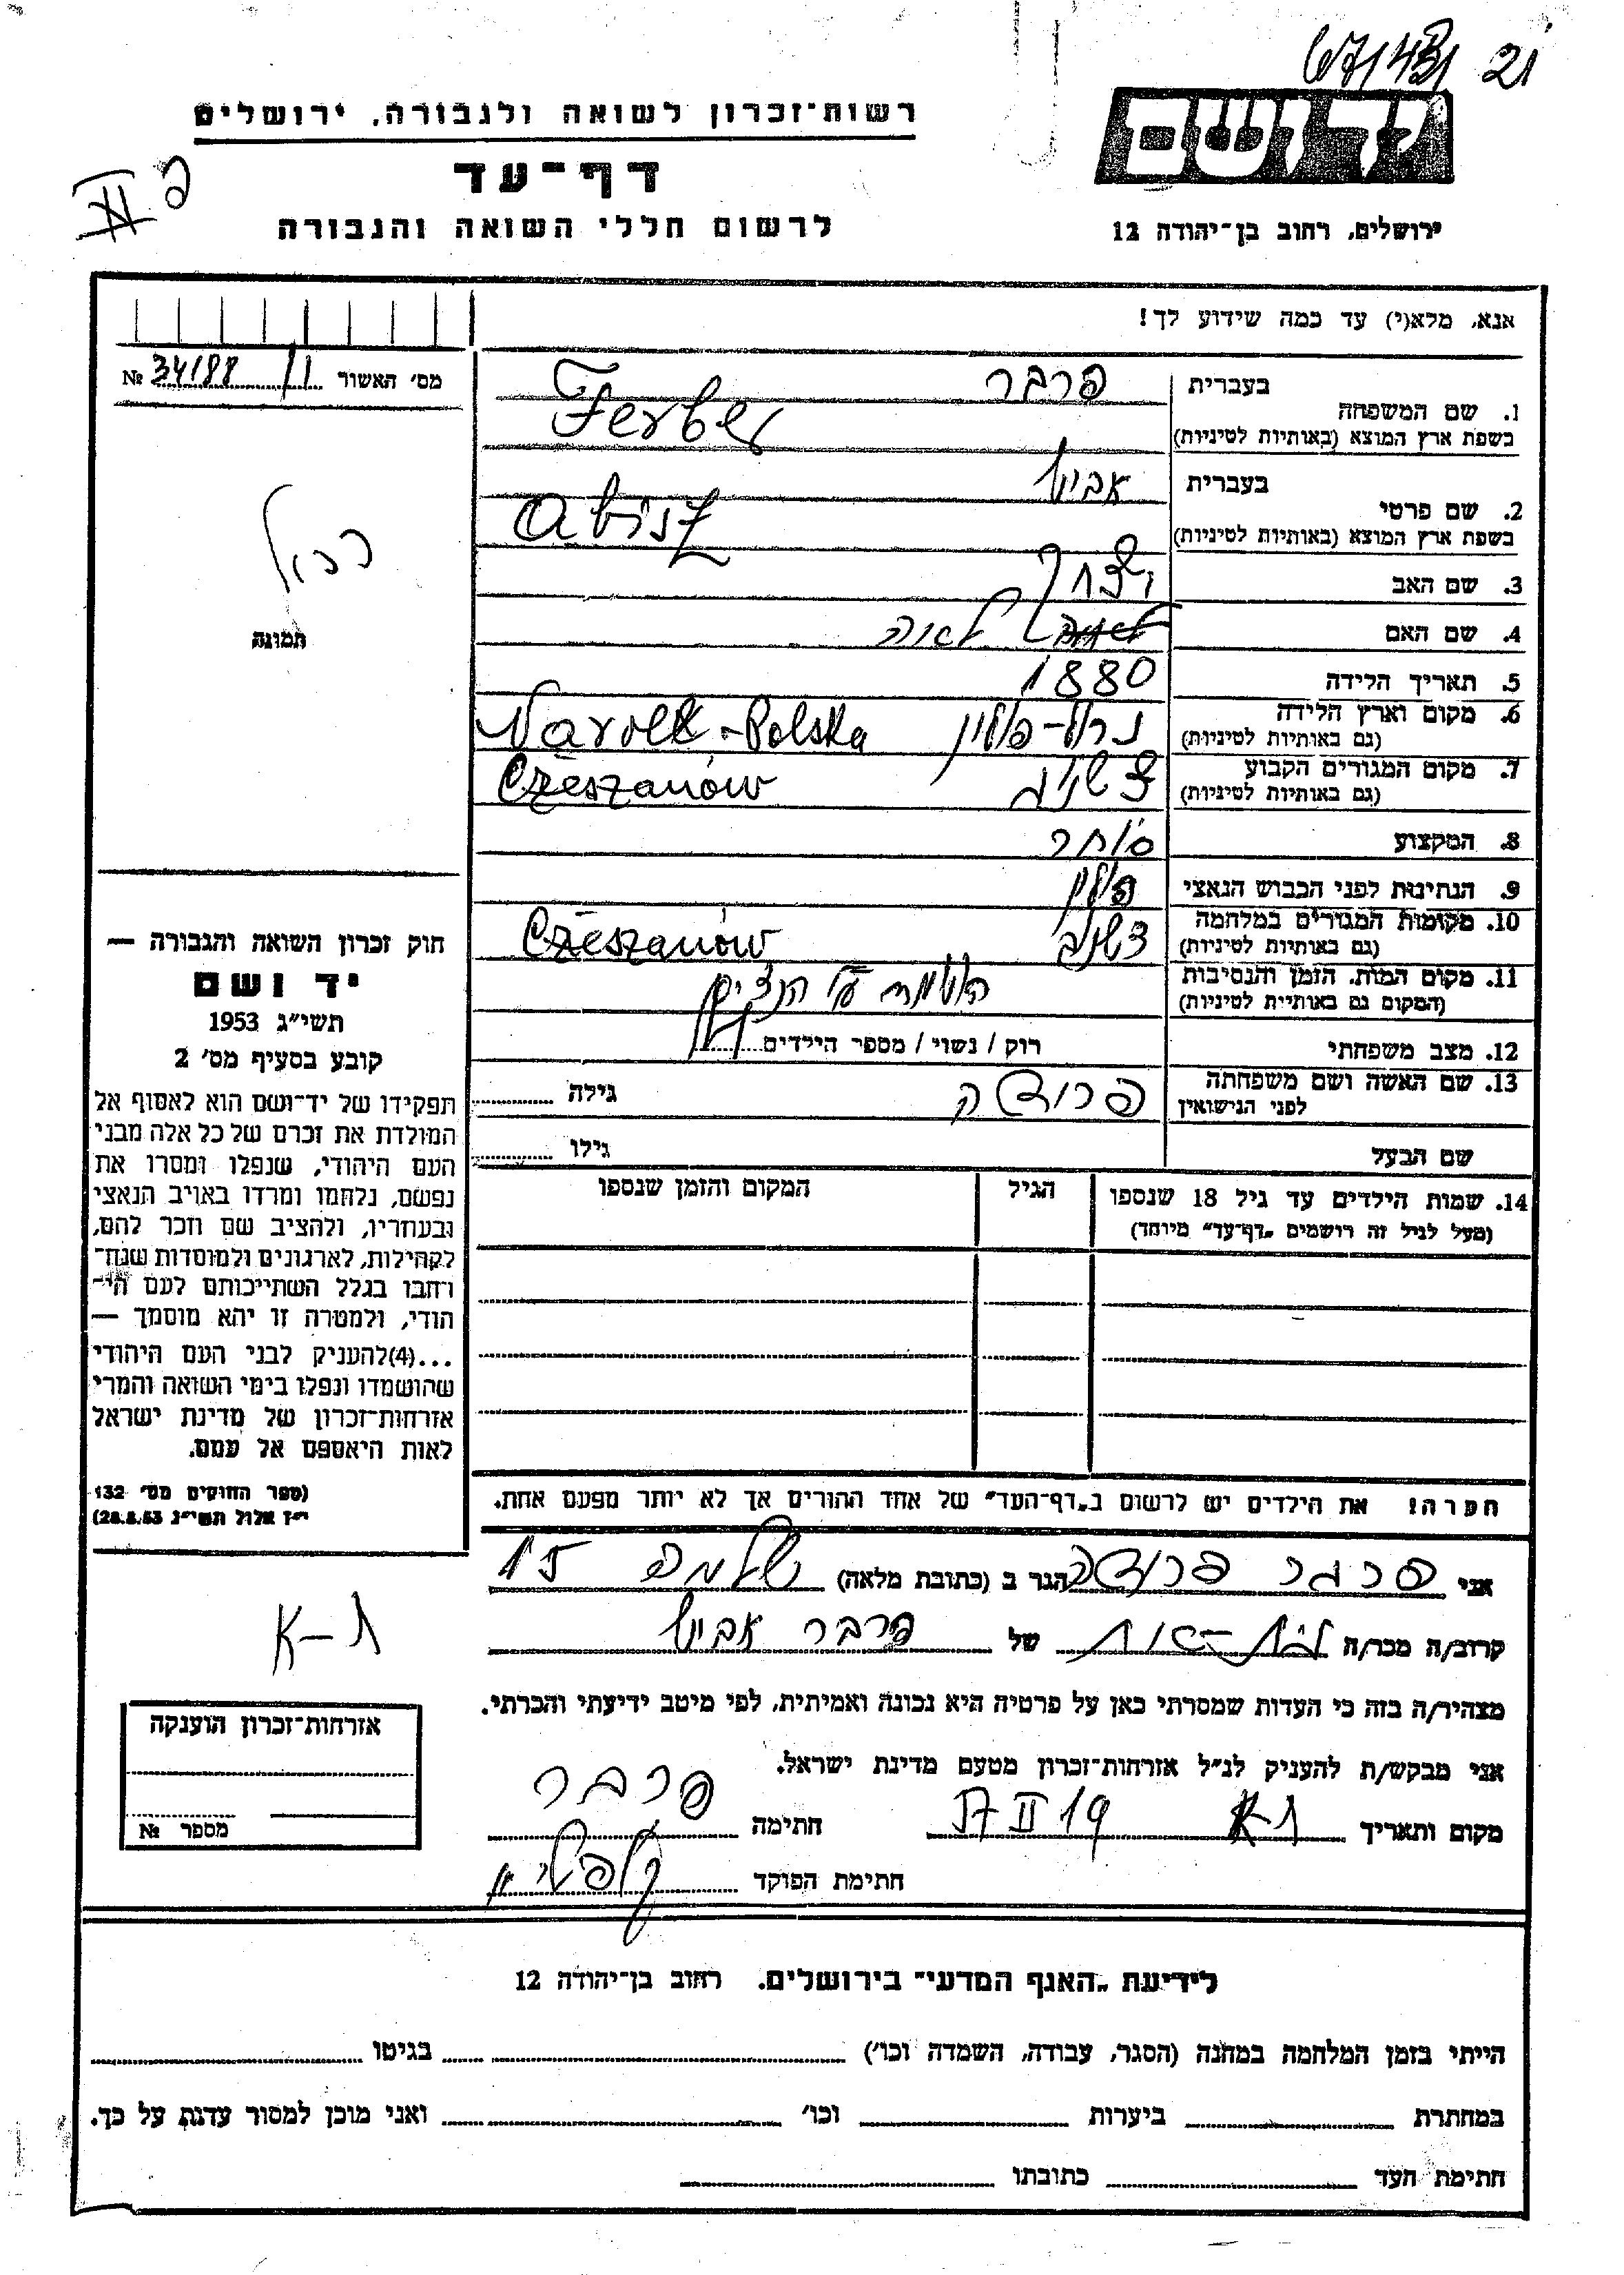 67/431 21
יד ושם
רשות־זכרון לשואה ולגבורה, ירושלים
דף־עד
לרשום חללי השואה והגבורה
ירושלים, רחוב בן־יהודה 12
אנא, מלא(י) עד כמה שידוע לך!
מס׳ האשור 34188 №
בעברית פרבר
1. שם המשפחה
בשפת ארץ המוצא (באותיות לטיניות) Ferber
בעברית אביש
2. שם פרטי
בשפת ארץ המוצא (באותיות לטיניות) Abisz
3. שם האב יצחק
4. שם האם לאה
5. תאריך הלידה 1880
6. מקום וארץ הלידה נרול-פולין
(גם באותיות לטיניות) Narolk-Polska
7. מקום המגורים הקבוע
(גם באותיות לטיניות) Czeszanów
8. המקצוע סוחר
9. הנתינות לפני הכבוש הנאצי פולין
10. מקומות המגורים במלחמה
(גם באותיות לטיניות) Czeszanów
11. מקום המות, הזמן והנסיבות
(המקום גם באותיית לטיניות)
12. מצב משפחתי רוק / נשוי / מספר הילדים
13. שם האשה ושם משפחתה
לפני הנישואין גילה
שם הבעל גילו
14. שמות הילדים עד גיל 18 שנספו הגיל המקום והזמן שנספו
(מעל לגיל זה רושמים „דף־עד״ מיוחד)
הערה! את הילדים יש לרשום ב„דף־העד״ של אחד ההורים אך לא יותר מפעם אחת.
תמונה
חוק זכרון השואה והגבורה —
יד ושם
תשי״ג 1953
קובע בסעיף מס׳ 2
תפקידו של יד־ושם הוא לאסוף אל
המולדת את זכרם של כל אלה מבני
העם היהודי, שנפלו ומסרו את
נפשם, נלחמו ומרדו באויב הנאצי
ובעוזריו, ולהציב שם וזכר להם,
לקהילות, לארגונים ולמוסדות שנח־
רחבו בגלל השתייכותם לעם הי־
הודי, ולמטרה זו יהא מוסמך —
...(4)להעניק לבני העם היהודי
שהושמדו ונפלו בימי השואה והמרי
אזרחות־זכרון של מדינת ישראל
לאות היאספם אל עמם.
(ספר החוקים מס׳ 132
י״ז אלול תשי״ג 28.8.53)
אני הגר ב (כתובת מלאה)
קרוב/ה מכר/ה של פרבר אביש
מצהיר/ה בזה כי העדות שמסרתי כאן על פרטיה היא נכונה ואמיתית, לפי מיטב ידיעתי והכרתי.
אני מבקש/ת להעניק לנ״ל אזרחות־זכרון מטעם מדינת ישראל.
מקום ותאריך ת-א חתימה פרבר
חתימת הפוקד
ת-א
אזרחות־זכרון הוענקה
מספר №
לידיעת „האגף המדעי״ בירושלים, רחוב בן־יהודה 12
הייתי בזמן המלחמה במחנה (הסגר, עבודה, השמדה וכו׳) בגיטו
במחתרת ביערות וכו׳ ואני מוכן למסור עדות על כך.
חתימת העד כתובתו